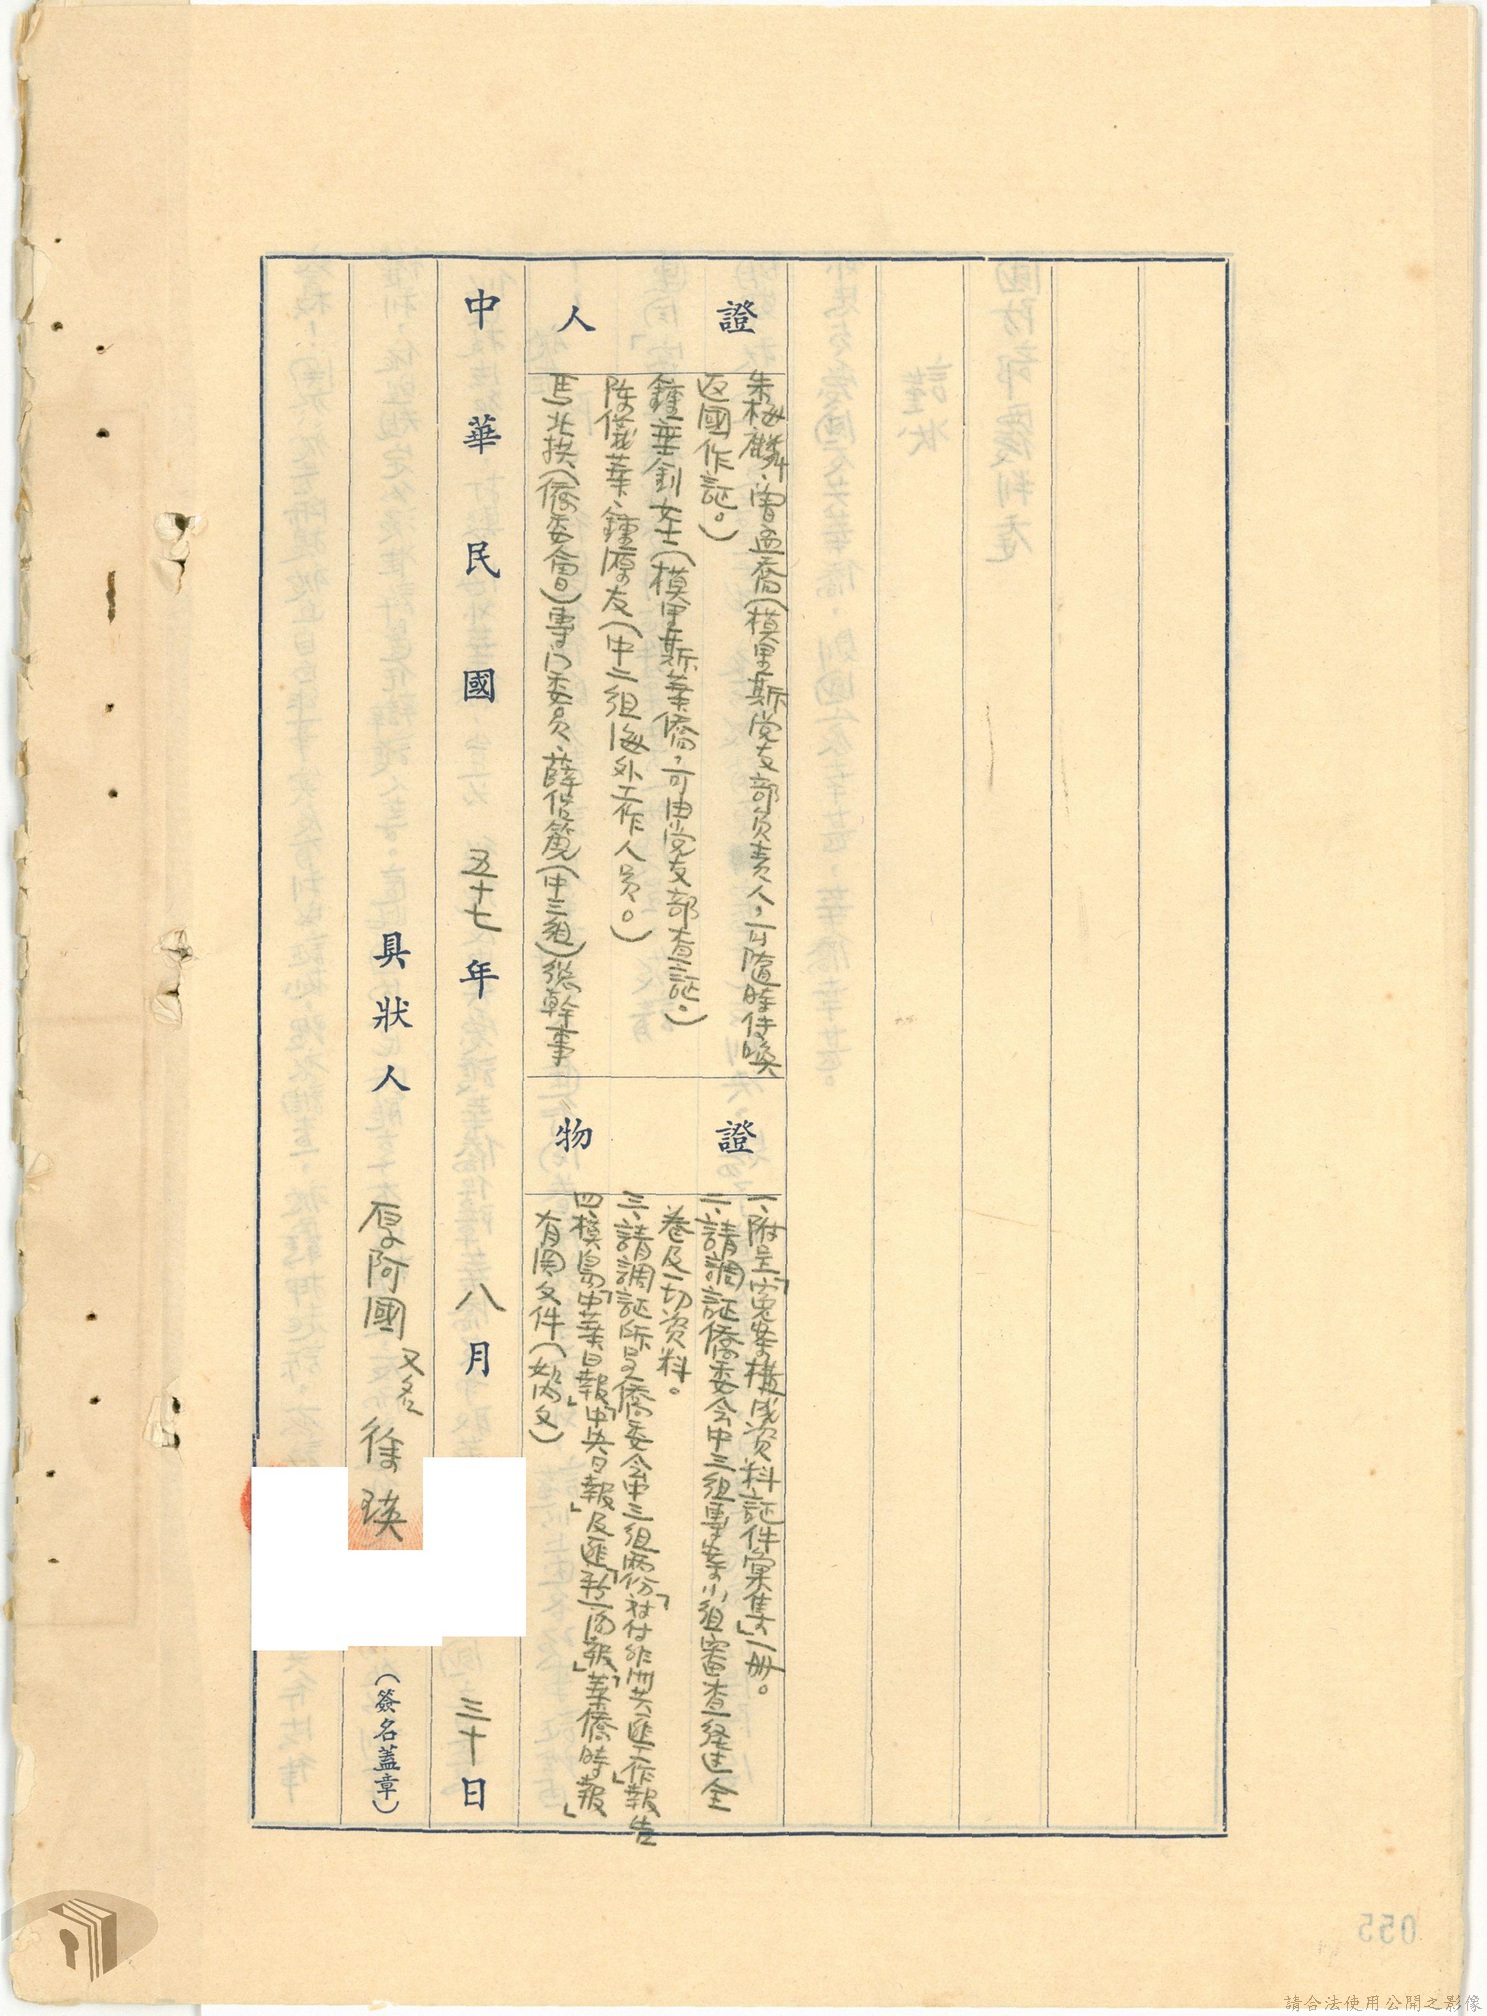 證人
朱梅麟、曾孟喬(模里斯党支部負責人，可隨時传喚
返國作証。)
鍾亜釗女士(模里斯華僑，可由党支部查証。)
陈儀華、鍾原友(中二組海外工作人員。)
馬北拱(僑委會)專门委员、薛佁篪(中三組)總幹事
證物
一、附呈「寃案構成資料証件彙集」一册。
二、請調証僑委会中三組專案小組審查経过全
卷及一切资料。
三、請調証所呈僑委会中三組两份「対付非洲共匪工作報告」
四、模島「中華日報」「中央日報」及匪「新一百報」「華僑時報」
有関文件(如內文)
中華民國五十七年八月三十日
具狀人 厚阿國 又名 徐瑛 (簽名蓋章)
055
請合法使用公開之影像